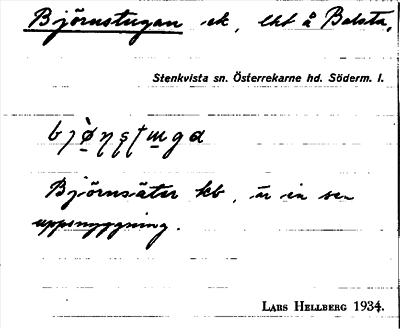 Björnstugan ek, lht å Balsta,
Stenkvista sn. Österrekarne hd. Söderm. l.
Björnsäter kb, är en sen
uppsnyggning.
LARS HELLBERG 1934.